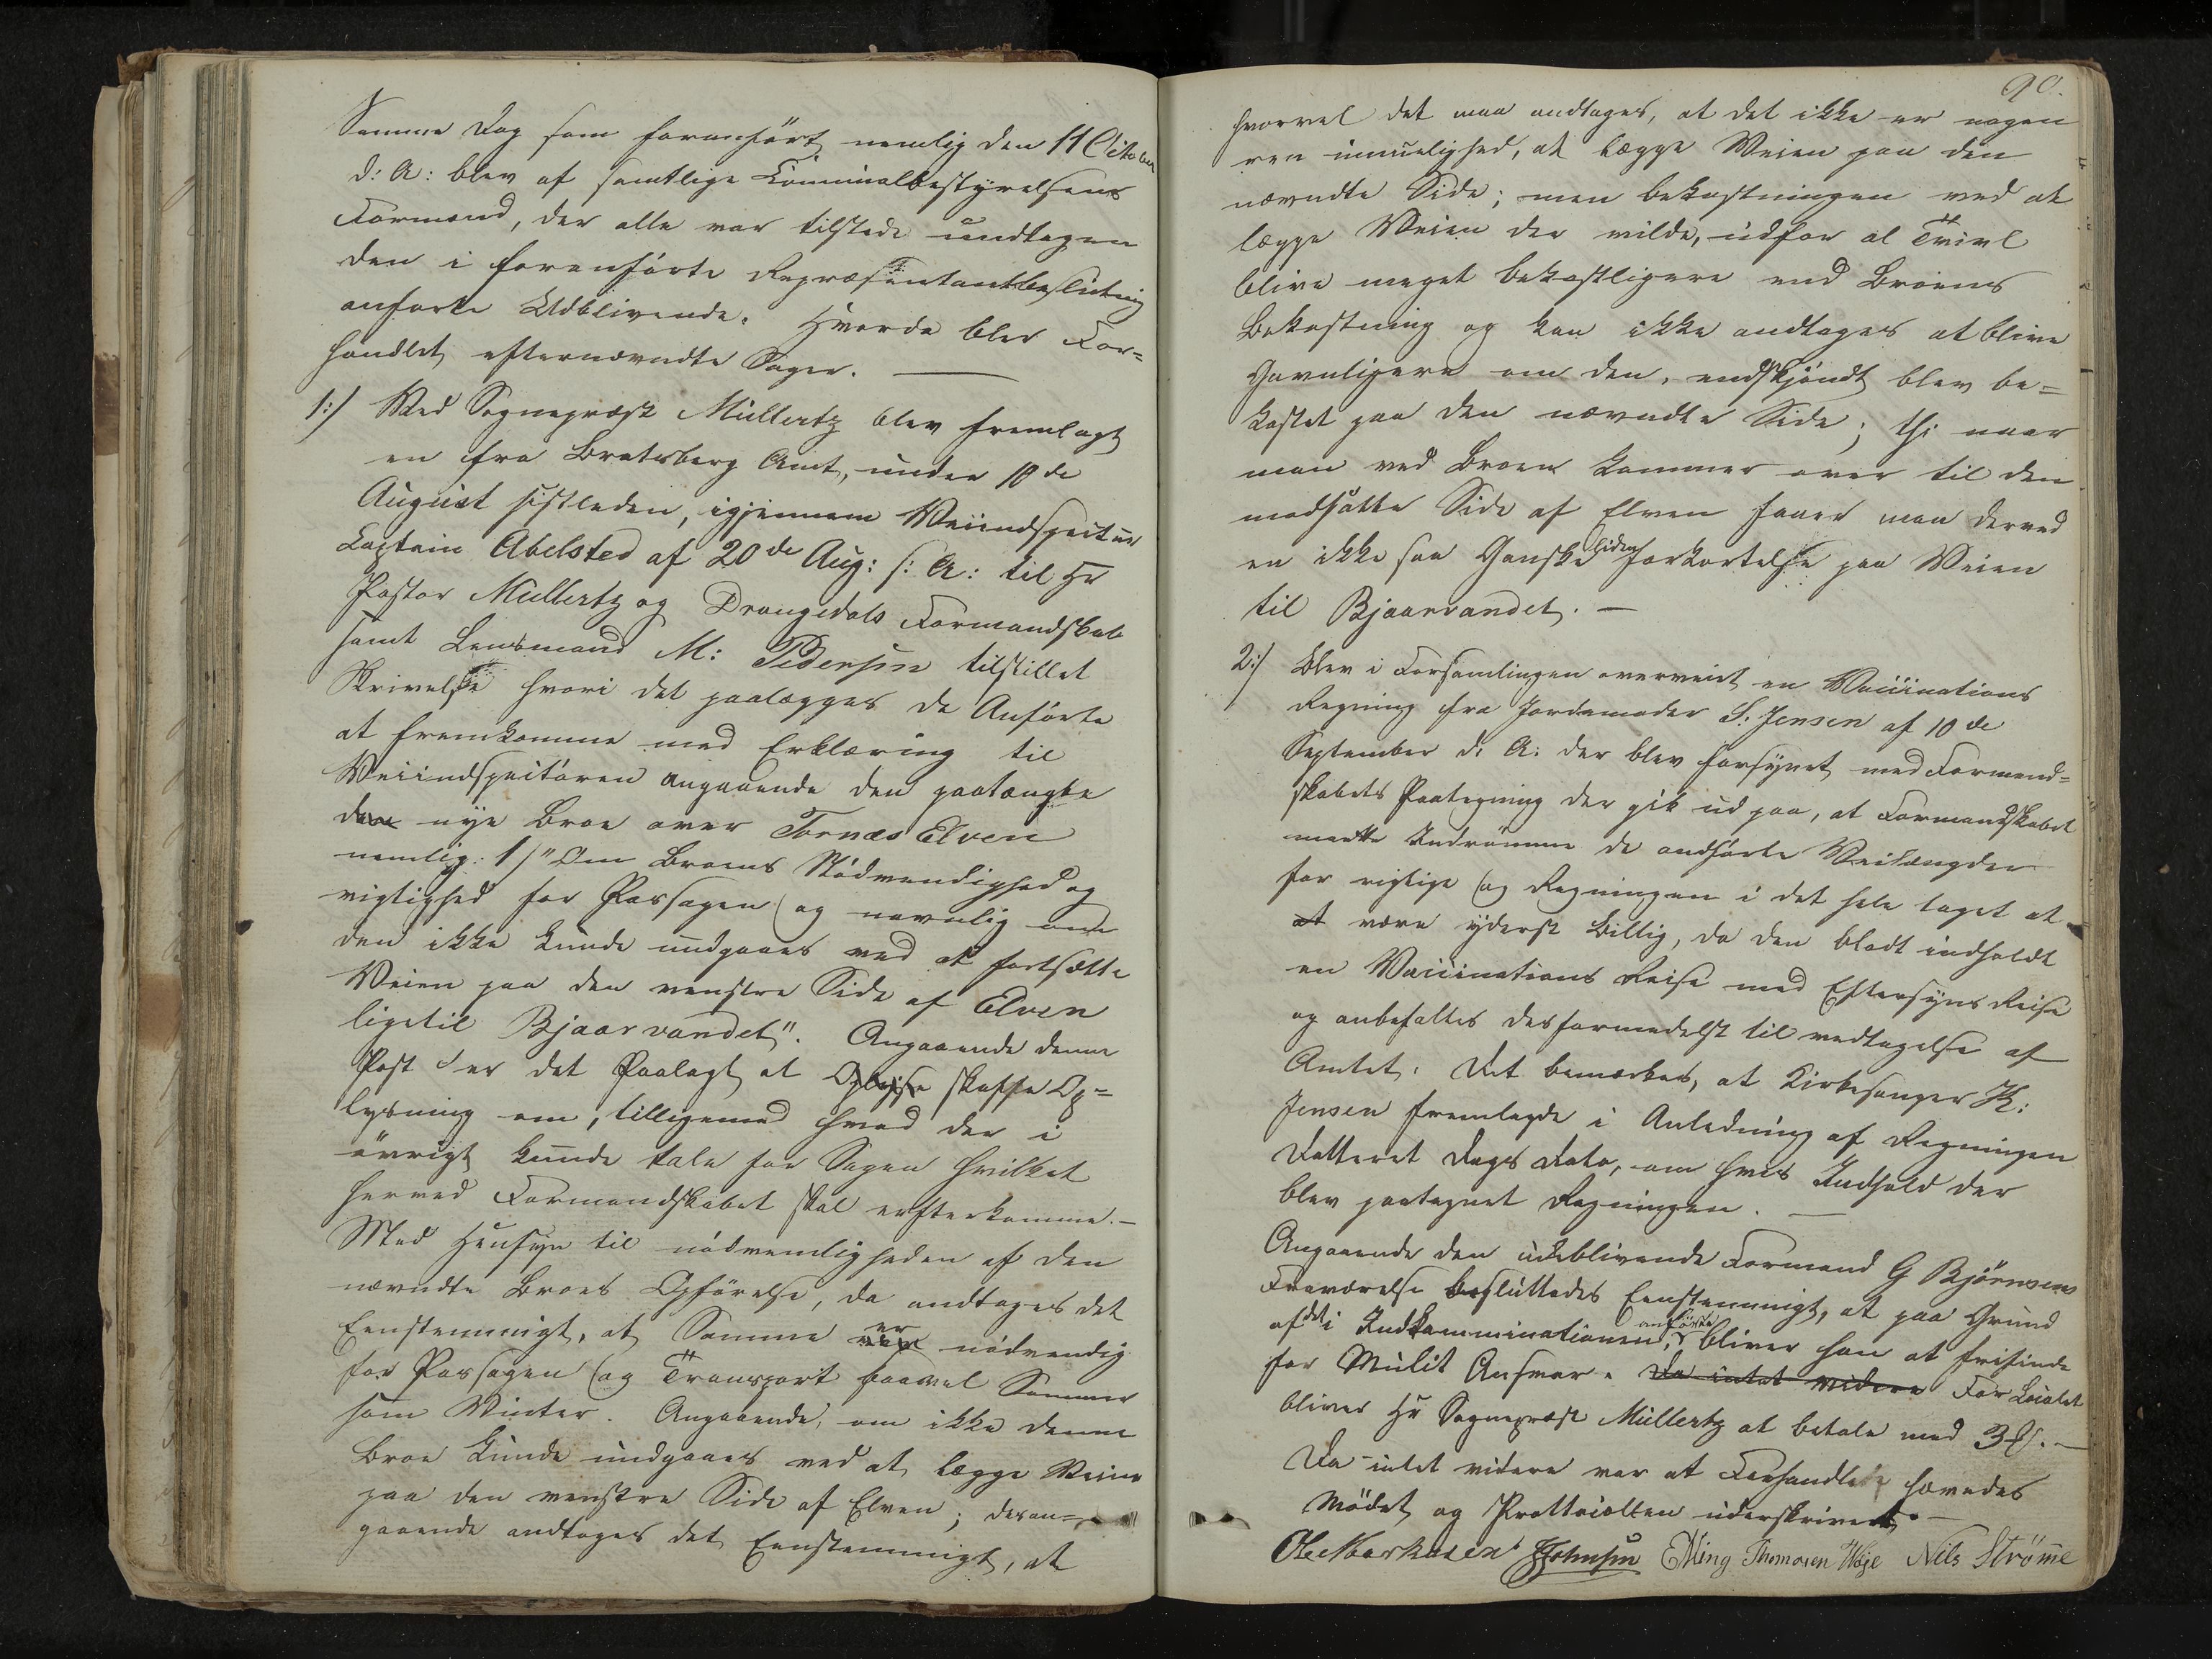 Samme Dag som foranført nemlig den 11 October
d: A: blev af samtlige Communalbestyrelsens
Formænd, der alle var tilstede undtagen
den i foranførte Repræsentantbeslutning
anførte Udblivende. Hvorda blev For-
handlet efternævndte Sager. —
1:/ Ved Sognepræst Müllertz blev fremlagt
en fra Bratsberg Amt, under 18de
August sistleden, igjennem Veiindspecteur
Captain Abelsted af 20de Aug: s: A: til Hr
Pastor Müllertz og Drangedals Formandskab
samt Lensmand M: Pedersen tilstillet
Skrivelse hvori det paalægges de Anførte
at fremkomme med Erklæring til
Veiindspecteuren angaaende den paatænkte
den nye Broe over Tornæs Elven
nemlig: 1/ "Om Broens Nødvendighed og
vigtighed for Passagen (og navnlig om
den ikke kunde undgaaes ved at fortsætte
Veien paa den venstre Side af Elven
ligetil Bjaarvandet". Angaaende denne
Post er det Paalagt at Oplyse skaffe Op-
lysning om, tilligemed hvad der i
øvrigt kunde tale for Sagen hvilket
herved Formandskabet skal efterkomme. —
Med Hensyn til nødvendigheden af den
nævndte Broes Opførelse, da andtages det
Eenstemmigt, at Samme er nødvendig
for Passagen (og Transport saavel Sommer
som Vinter. Angaaende, om ikke denne
Broe kunde undgaaes ved at lægge Veien
paa den venstre Side af Elven; desan-
gaaende andtages det Eenstemmigt, at
90.
hvorvel det maa andtages, at det ikke er nogen
ren umuelighed, at lægge Veien paa den
nævndte Side; men bekostningen ved at
lægge Veien der vilde, udfor al Tvivl
blive meget bekostligere end Broens
Bekostning og kan ikke andtages at blive
Gavnligere om den, endskjøndt blev be-
kostet paa den nævndte Side; thi naar
man ved Broen kommer over til den
modsatte Side af Elven faaer man derved
en ikke saa Ganske liden forkortelse paa Veien
til Bjaarvandet. —
2:/ Blev i Forsamlingen overveiet en Vaccinations
Regning fra Jordemoder S: Jensen af 10de
September d: A: der blev forsynet med Formand-
skabets Paategning der gik ud paa, at Formandskabet
maatte Indrømme de andførte Veilængder
for rigtige (og Regningen i det hele taget at
at være yderst billig, da den blodt indholdt
en Vaccinations Reise med Eftersyns Reise
og anbefaltes desformedelst til vedtagelse af
Amtet. Det bemærkes, at Kirkesanger K:
Jensen fremlagde i Anledning af Regningen
Datteret Dags Dato, om hvis Indhold der
blev paategnet Regningen. —
Angaaende den udeblivende Formand G Bjørnsens
Fraværelse besluttedes Eenstemmigt, at paa Grund
af det i Indkamminationen anførte, bliver han at frifinde
for Mulct Ansvar. Da intet videre For Localet
bliver Hr Sognepræst Müllertz at betale med 3 ß. —
Da intet videre var at Forhandle hævedes
Mødet og Prottocollen underskrivet. —
Ole Markusen JJohnsen EMing Thomasen Woje Nils Strømme